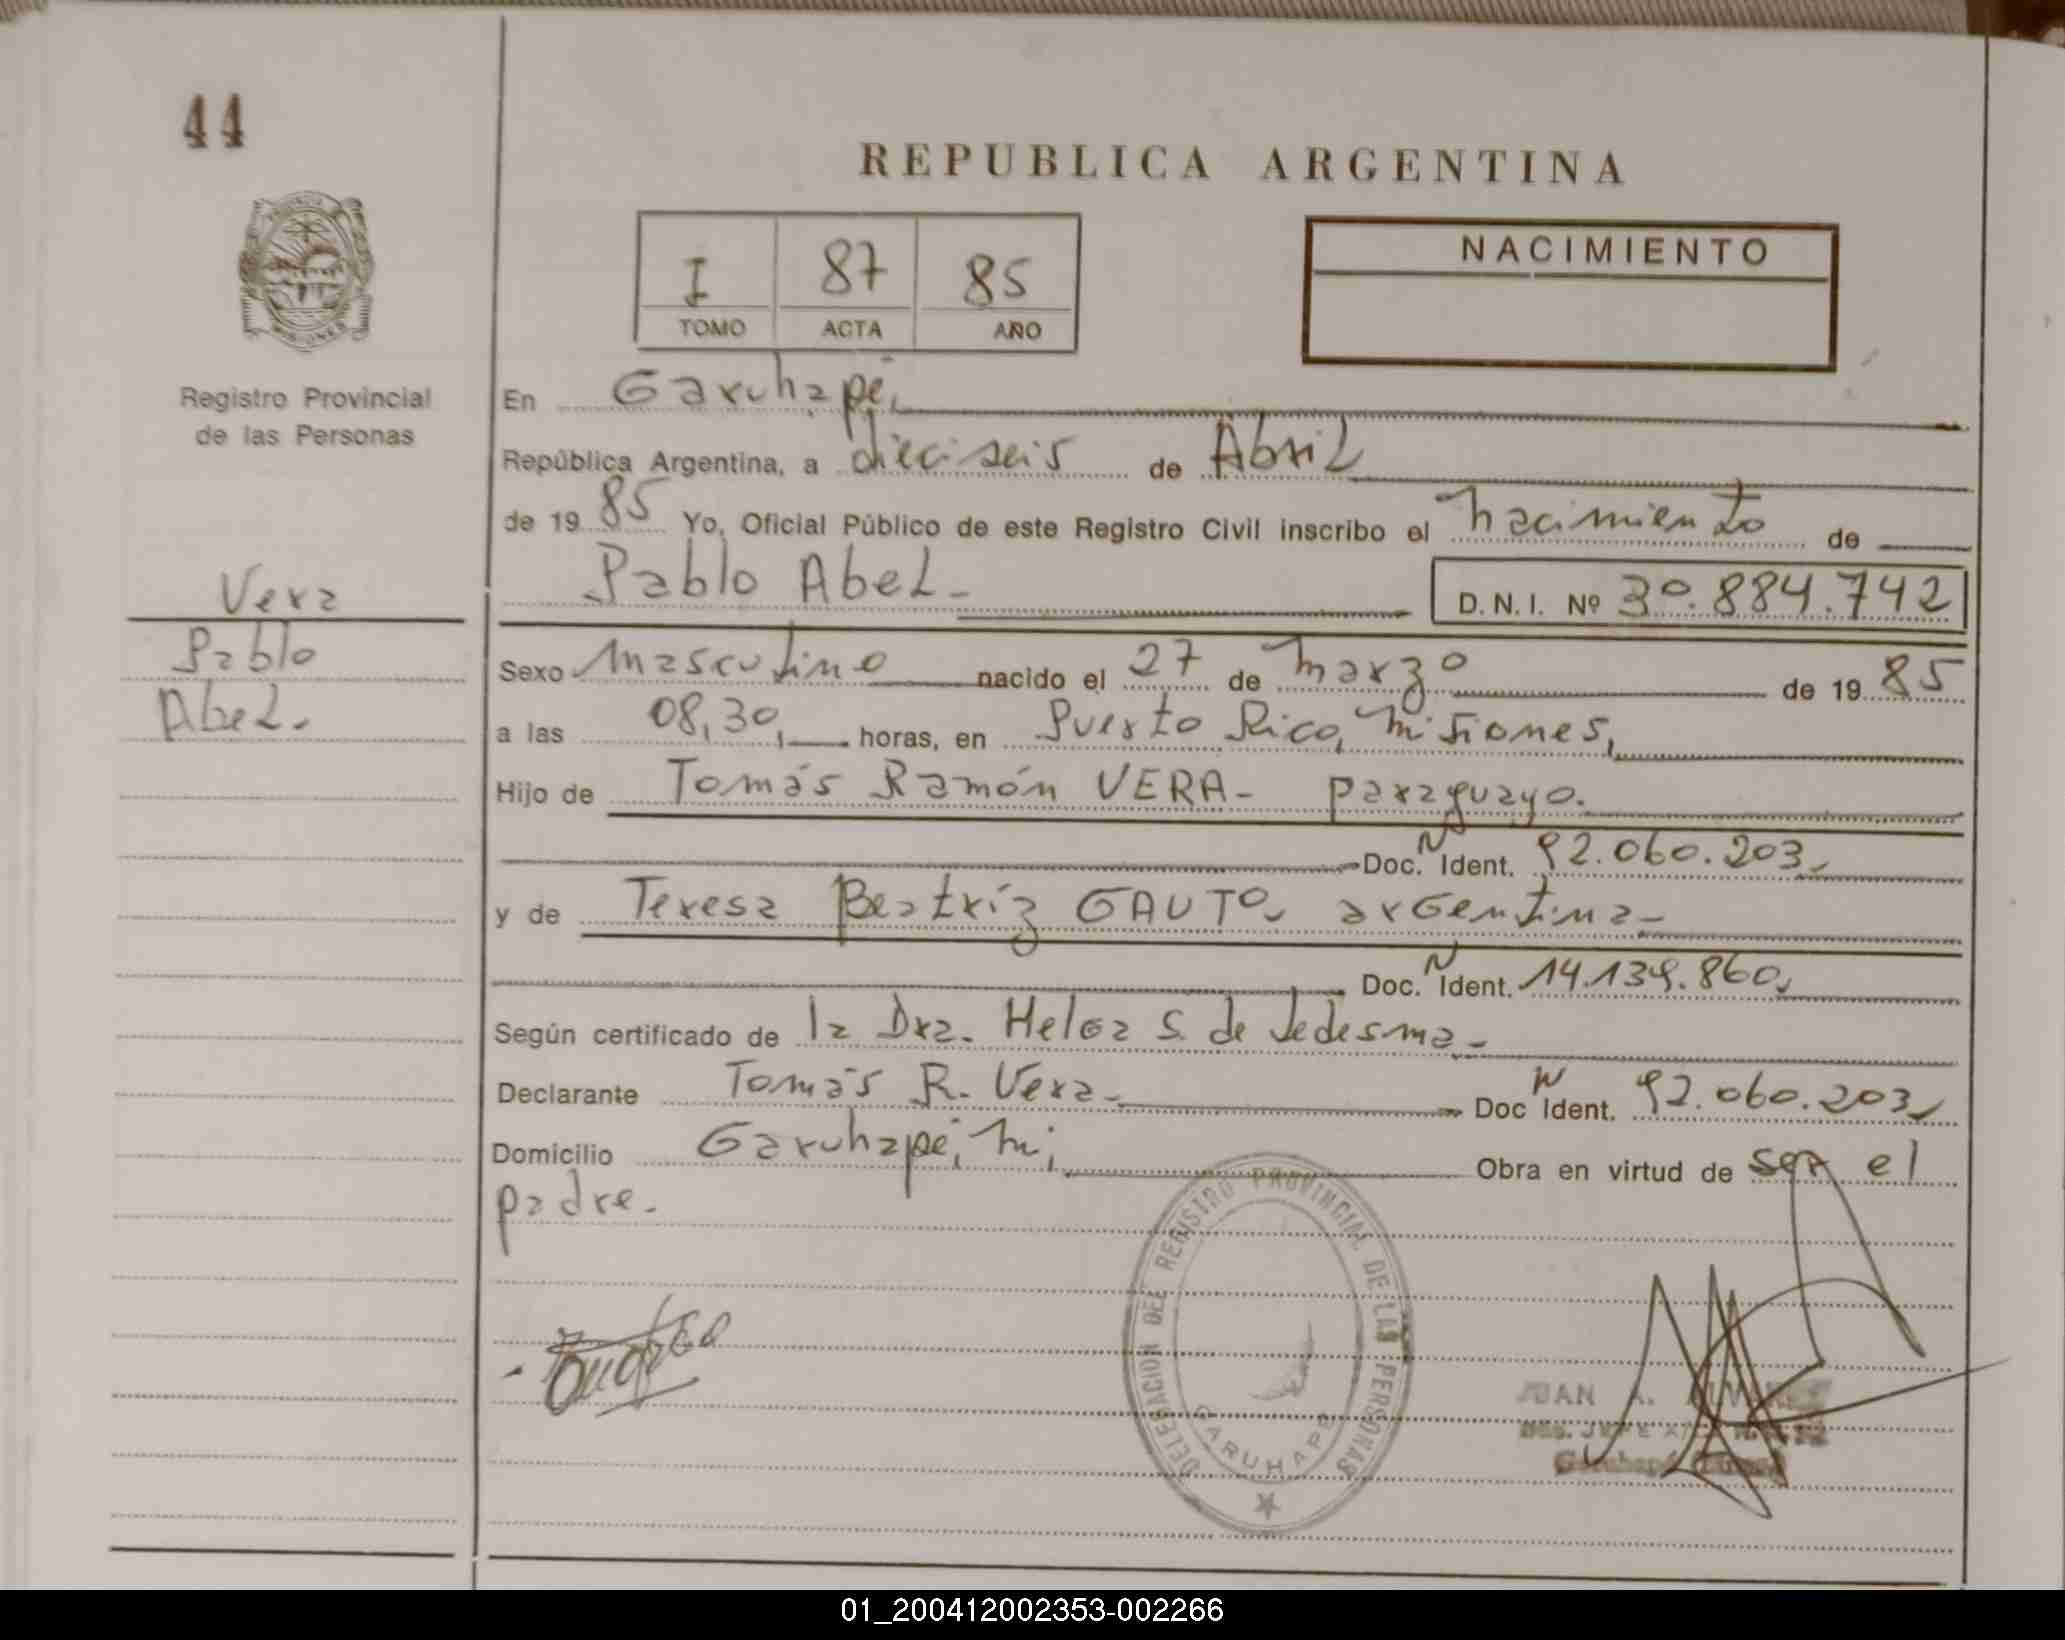 44
REPUBLICA ARGENTINA
I 87 85
TOMO ACTA AÑO
NACIMIENTO
Registro Provincial
de las Personas
Vera
Pablo
Abel.
En Garuhapé,
República Argentina, a dieciseis de Abril
de 19 85 Yo, Oficial Público de este Registro Civil inscribo el nacimiento de
Pablo Abel - D. N. I. Nº 30.884.742
Sexo masculino nacido el 27 de marzo de 19 85
a las 08,30, horas, en Puerto Rico, Misiones,
Hijo de Tomás Ramón VERA - paraguayo.
Doc. N Ident. 92.060.203,
y de Teresa Beatríz GAUTO, argentina -
Doc. N Ident. 14.139.860,
Según certificado de la Dra. S. de Ledesma -
Declarante Tomás R. Vera - Doc N Ident. 92.060.203,
Domicilio Garuhapé, Mi, Obra en virtud de ser el
padre.
DELEGACION DEL REGISTRO PROVINCIAL DE LAS PERSONAS
GARUHAPE
JUAN A.
01_200412002353-002266